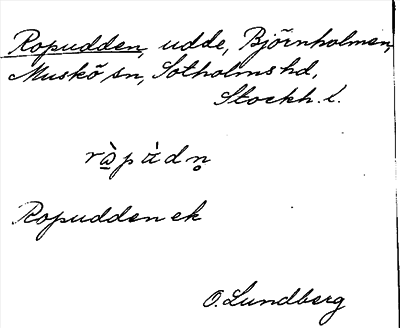 Ropudden, udde, Björnholmen,
Muskö sn, Sotholms hd,
Stockh. l.
rὼpὰdn̥
Ropudden ek
O. Lundberg